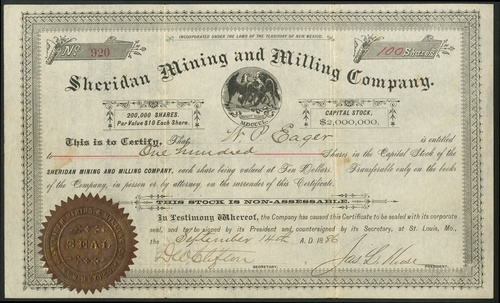 INCORPORATED UNDER THE LAWS OF THE TERRITORY OF NEW MEXICO.
No. 920
100 Shares
Sheridan Mining and Milling Company.
200,000 SHARES.
Par Value $10 Each Share.
MDCCCL
CAPITAL STOCK,
$2,000,000.
This is to Certify, That W. P. Eager is entitled
to One hundred Shares in the Capital Stock of the
SHERIDAN MINING AND MILLING COMPANY, each share being valued at Ten Dollars. Transferable only on the books
of the Company, in person or by attorney on the surrender of this Certificate.
THIS STOCK IS NON-ASSESSABLE.
In Testimony Whereof, the Company has caused this Certificate to be sealed with its corporate
seal, and to be signed by its President and countersigned by its Secretary, at St. Louis, Mo.,
the September 14th A.D. 1886
SECRETARY.
PRESIDENT.
SEAL